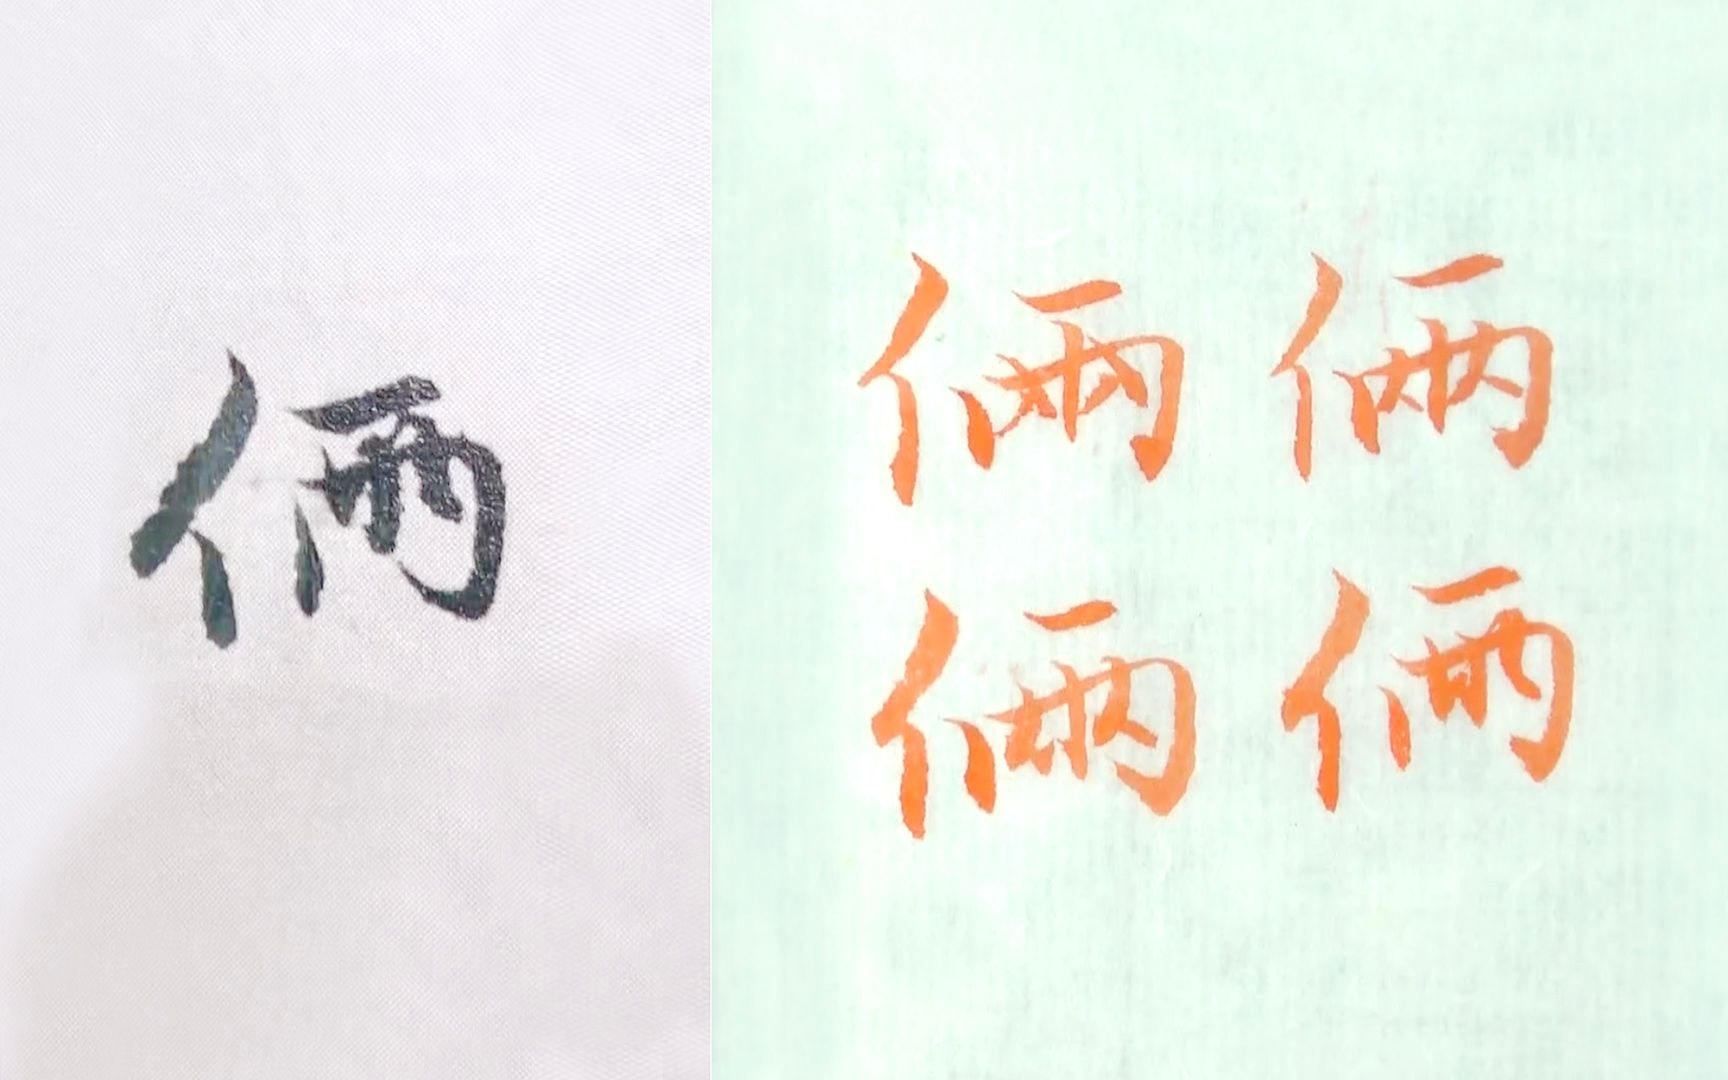 俩
俩 俩
俩 俩